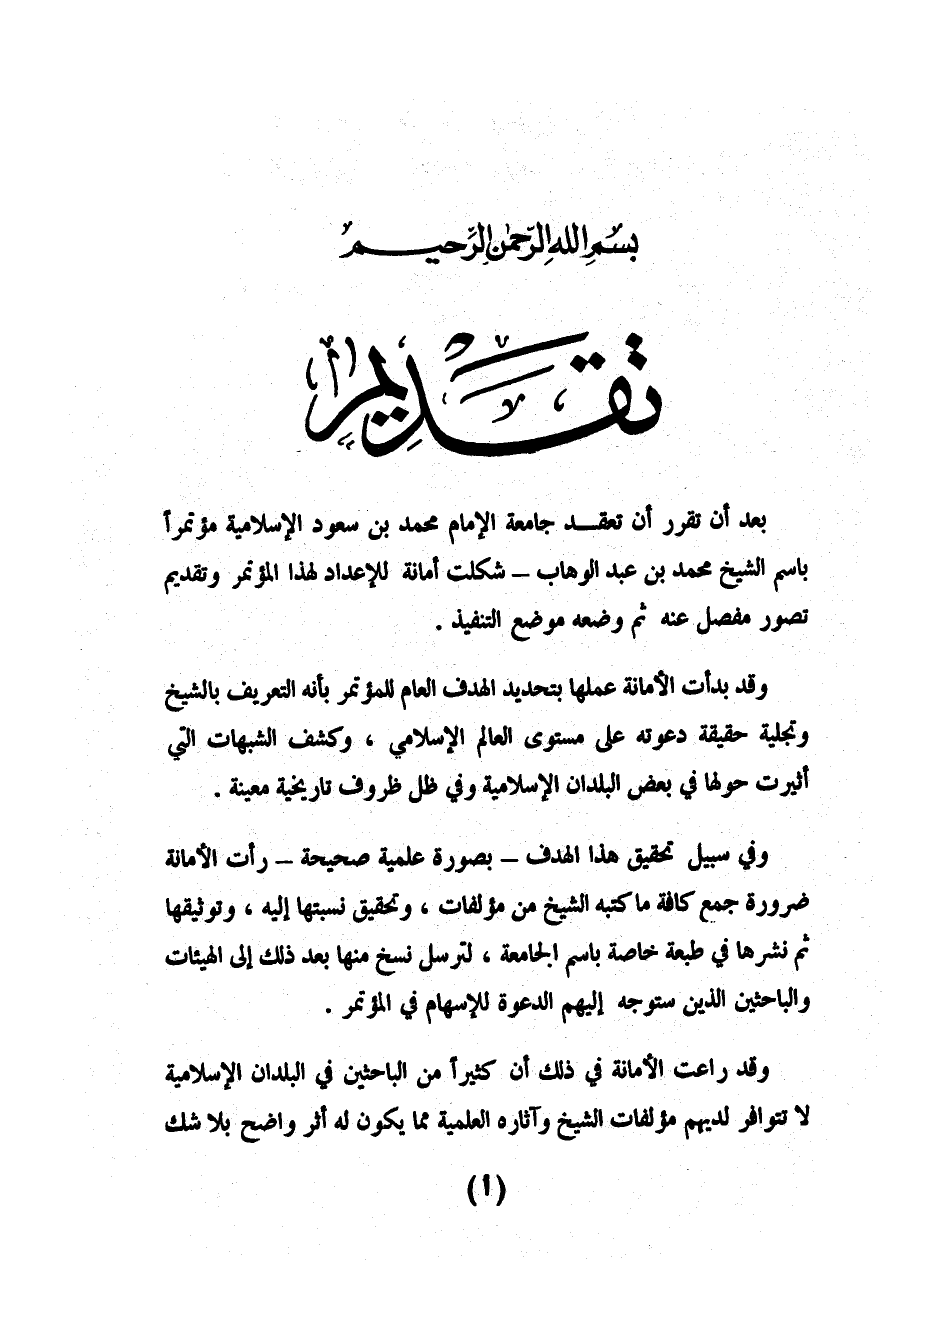 بسم الله الرحمن الرحيم
تقديم
بعد أن تقرر أن تعقد جامعة الإمام محمد بن سعود الإسلامية مؤتمراً
باسم الشيخ محمد بن عبد الوهاب – شكلت أمانة للإعداد لهذا المؤتمر وتقديم
تصور مفصل عنه ثم وضعه موضع التنفيذ .
وقد بدأت الأمانة عملها بتحديد الهدف العام للمؤتمر بأنه التعريف بالشيخ
وتجلية حقيقة دعوته على مستوى العالم الإسلامي ، وكشف الشبهات التي
أثيرت حولها في بعض البلدان الإسلامية وفي ظل ظروف تاريخية معينة .
وفي سبيل تحقيق هذا الهدف – بصورة علمية صحيحة – رأت الأمانة
ضرورة جمع كافة ما كتبه الشيخ من مؤلفات ، وتحقيق نسبتها إليه ، وتوثيقها
ثم نشرها في طبعة خاصة باسم الجامعة ، لترسل نسخ منها بعد ذلك إلى الهيئات
والباحثين الذين ستوجه إليهم الدعوة للإسهام في المؤتمر .
وقد راعت الأمانة في ذلك أن كثيراً من الباحثين في البلدان الإسلامية
لا تتوافر لديهم مؤلفات الشيخ وآثاره العلمية مما يكون له أثر واضح بلا شك
(أ)